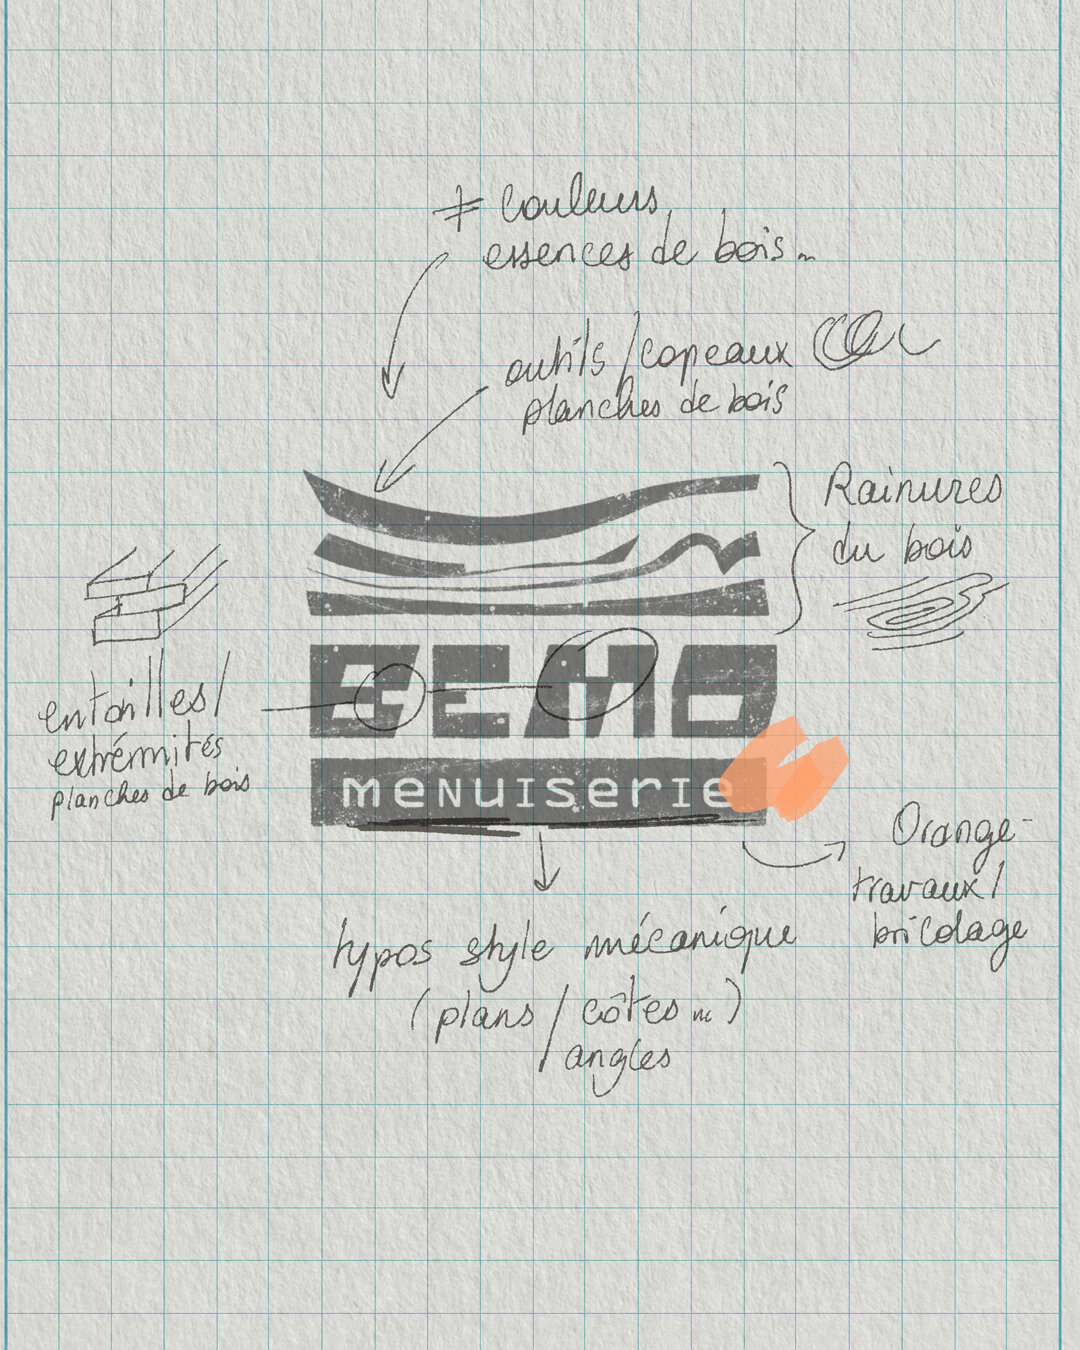 ≠ couleurs
essences de bois...
outils / copeaux
planches de bois
Rainures
du bois
entailles /
extrémités
planches de bois
BEMO
menuiserie
Orange
travaux /
bricolage
typos style mécanique
(plans / côtes ...)
/ angles